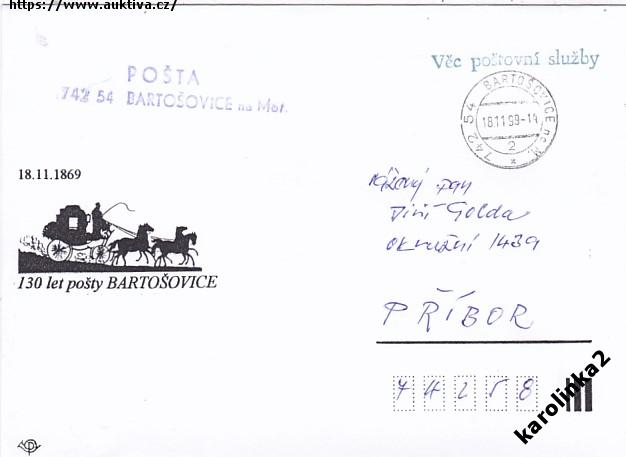 https://www.auktiva.cz/
POŠTA
742 54 BARTOŠOVICE na Mor.
Věc poštovní služby
742 54 BARTOŠOVICE na M.
18.11.99-14
2
18.11.1869
130 let pošty BARTOŠOVICE
Vážený pan
Jiří Golda
okružní 1439
PŘÍBOR
74258
karolinka2